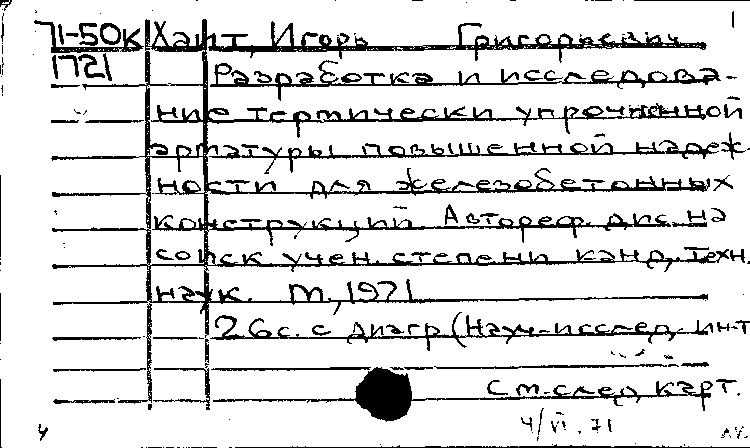 71-50к Хаит, Игорь Григорьевич
1721 Разработка и исследова-
ние термически упрочненной
арматуры повышенной надеж
ности для железобетонных
конструкций Автореф. дис. на
соиск учен. степени канд. техн.
наук. М., 1971
26с. с диагр (Науч-исслед. ин-т
См. след. карт.
4/VI. 71